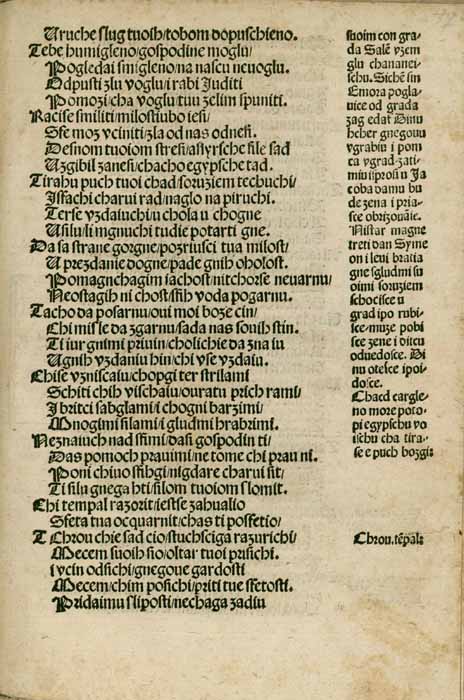 Uruche slug tuoih/tobom dopuschieno.
Tebe humigleno/gospodine moglu/
Pogledai smigleno/na nascu neuoglu.
Odpusti zlu voglu/i rabi Juditi
Pomozi/cha voglu tuu zelim spuniti.
Racise smiliti/milostiubo iesi/
Sfe moz vciniti/zla od nas odnesi.
Desnom tuoiom stresi/assyrsche sile sad
Uzgibil zanesi/chacho egypsche tad.
Tirahu puch tuoi chad/soruziem techuchi/
Isfachi charui rad/naglo na piruchi.
Terse vzdaiuchi/u chola u chogne
Usilu/i mgnuchi tudie potarti gne.
Da sa strane gorgne/pozriusci tua milost/
U prezdanie dogne/pade gnih oholost.
Pomagnchagim iachost/nitchorse neuarnu/
Neostagih ni chost/sfih voda pogarnu.
Tacho da posarnu/oui moi boze cin/
Chi misle da zgarnu/sada nas souih stin.
Ti iur gnimi priuin/cholichie da zna iu
Ugnih vzdaniu hin/chi vse vzdaiu.
Chise vzniscaiu/chopgi ter strilami
Schiti chih vischaiu/ouratu prich rami/
I britci sabglami/i chogni barzimi/
Mnogimi silami/i gludmi hrabrimi.
Neznaiuch nad sfimi/dasi gospodin ti/
Das pomoch prauimi/ne tome chi prau ni.
Poni chiuo sfihgi/nigdare charui sit/
Ti silu gnega hti/silom tuoiom slomit.
Chi tempal razorit/iestse zahualio
Sfeta tua ocquarnit/chas ti posfetio/
T Chrou chie sad cio/stuchsciga razurichi/
Mecem suoih sio/oltar tuoi prisichi.
i vcin odsichi/gnegoue gardosti
Mecem/chim posichi/priti tue sfetosti.
Pridaimu sliposti/nechaga zadiu
suoim con gra-
da Salẽ vzem
glu chananei-
schu. Sichẽ sin
Emora pogla-
uice od grada
zag edaſ Dinu
heber gnegouu
vgrabiu i pom
ca vgrad zati-
miu iiproſi u Ja
coba damu bu
de zena i pria-
sce obrizouaie.
Nistar magne
treti dan Syme
on i leui bratia
gne sgludmi su
oimi soruziem
schocisce u
grad ipo rubi-
sce/muze pobi
sce zene i diicu
oduedosce. Di
nu otesce ipoi-
dosce.
Chacd eargle-
no more poto-
pi egypschu vo
ischu cha tira-
se e puch bozgi:
Chrou.tẽpal: